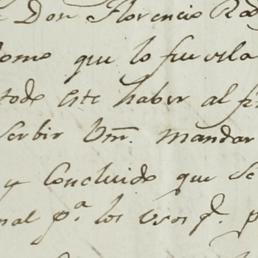 e Don Florencio Rod
Como que lo fue vela
todo este haber al fr
serbir Vm. mandar
y Concluido que se
nal p.ª los usos q.e p